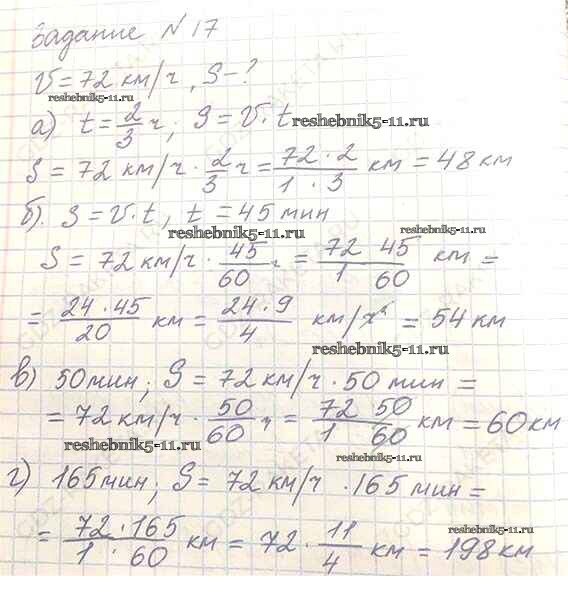 Задание N 17
V = 72 км/ч, S - ?
reshebnik5-11.ru
а) t = 2/3 ч; S = V · t
reshebnik5-11.ru
S = 72 км/ч · 2/3 ч = 72 · 2 / 1 · 3 км = 48 км
б). S = V · t, t = 45 мин
reshebnik5-11.ru
reshebnik5-11.ru
S = 72 км/ч · 45/60 ч = 72 45 / 1 60 км =
= 24 · 45 / 20 км = 24 · 9 / 4 км/ч = 54 км
reshebnik5-11.ru
в) 50 мин; S = 72 км/ч · 50 мин =
= 72 км/ч · 50/60 ч = 72 50 / 1 60 км = 60 км
reshebnik5-11.ru
reshebnik5-11.ru
г) 165 мин; S = 72 км/ч · 165 мин =
= 72 · 165 / 1 · 60 км = 72 · 11/4 км = 198 км
reshebnik5-11.ru